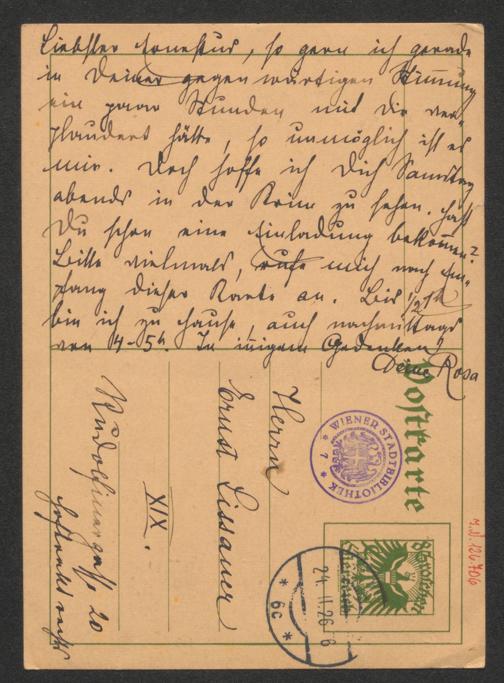 Liebster Ernestus, so gern ich gerade
in Deiner gegenwärtigen Stimmung
ein paar Stunden mit Dir ver-
plaudert hätte, so unmöglich ist es
mir. Doch hoffe ich Dich Samstag
abends in der zu sehen. Hast
Du schon eine Einladung bekommen?
Bitte vielmals, rufe mich nach Em-
pfang dieser Karte an. Bis 1/2
bin ich zu Hause, auch nachmittags
von 4-5h. In innigem Gedenken
Deine Rosa
Postkarte
WIENER STADTBIBLIOTHEK
* 7 *
M.S. 126706
24. II. 26 - 6
* 6c *
Herrn
Ernst Lissauer
XIX.
Rudolfinergasse 20